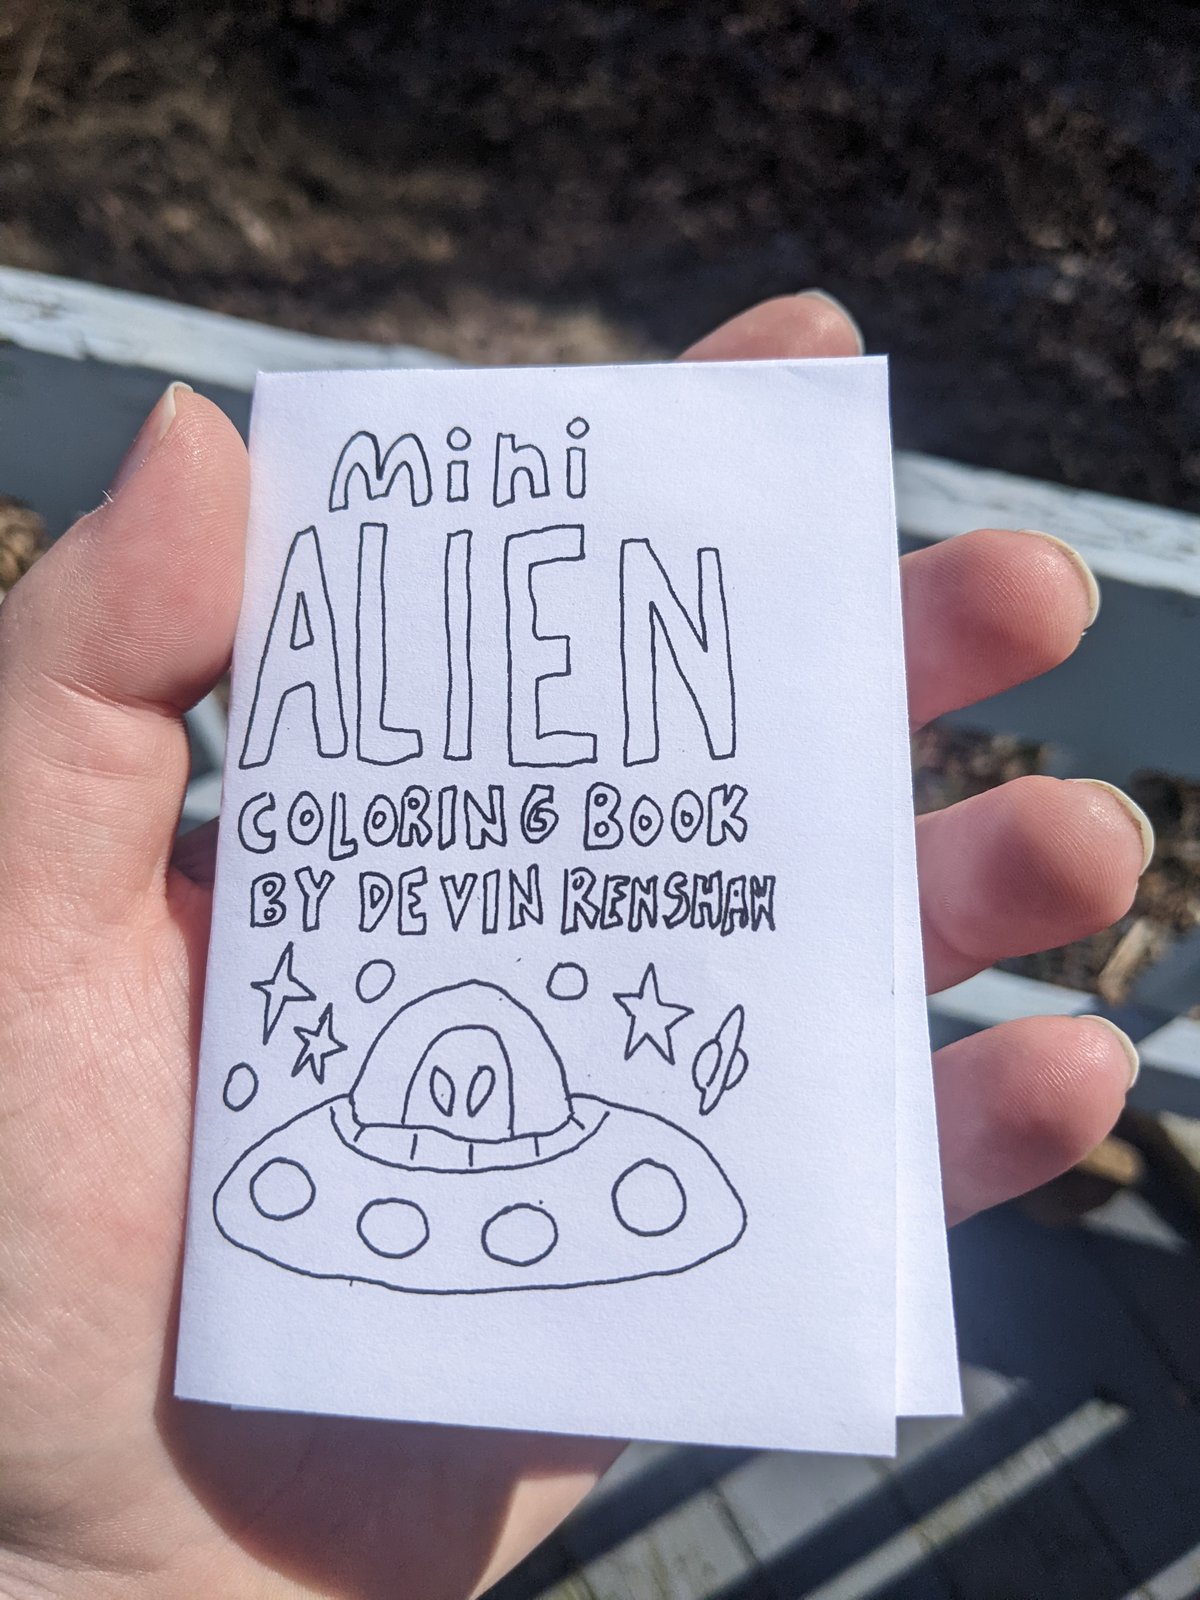 mini
ALIEN
COLORING BOOK
BY DEVIN RENSHAW